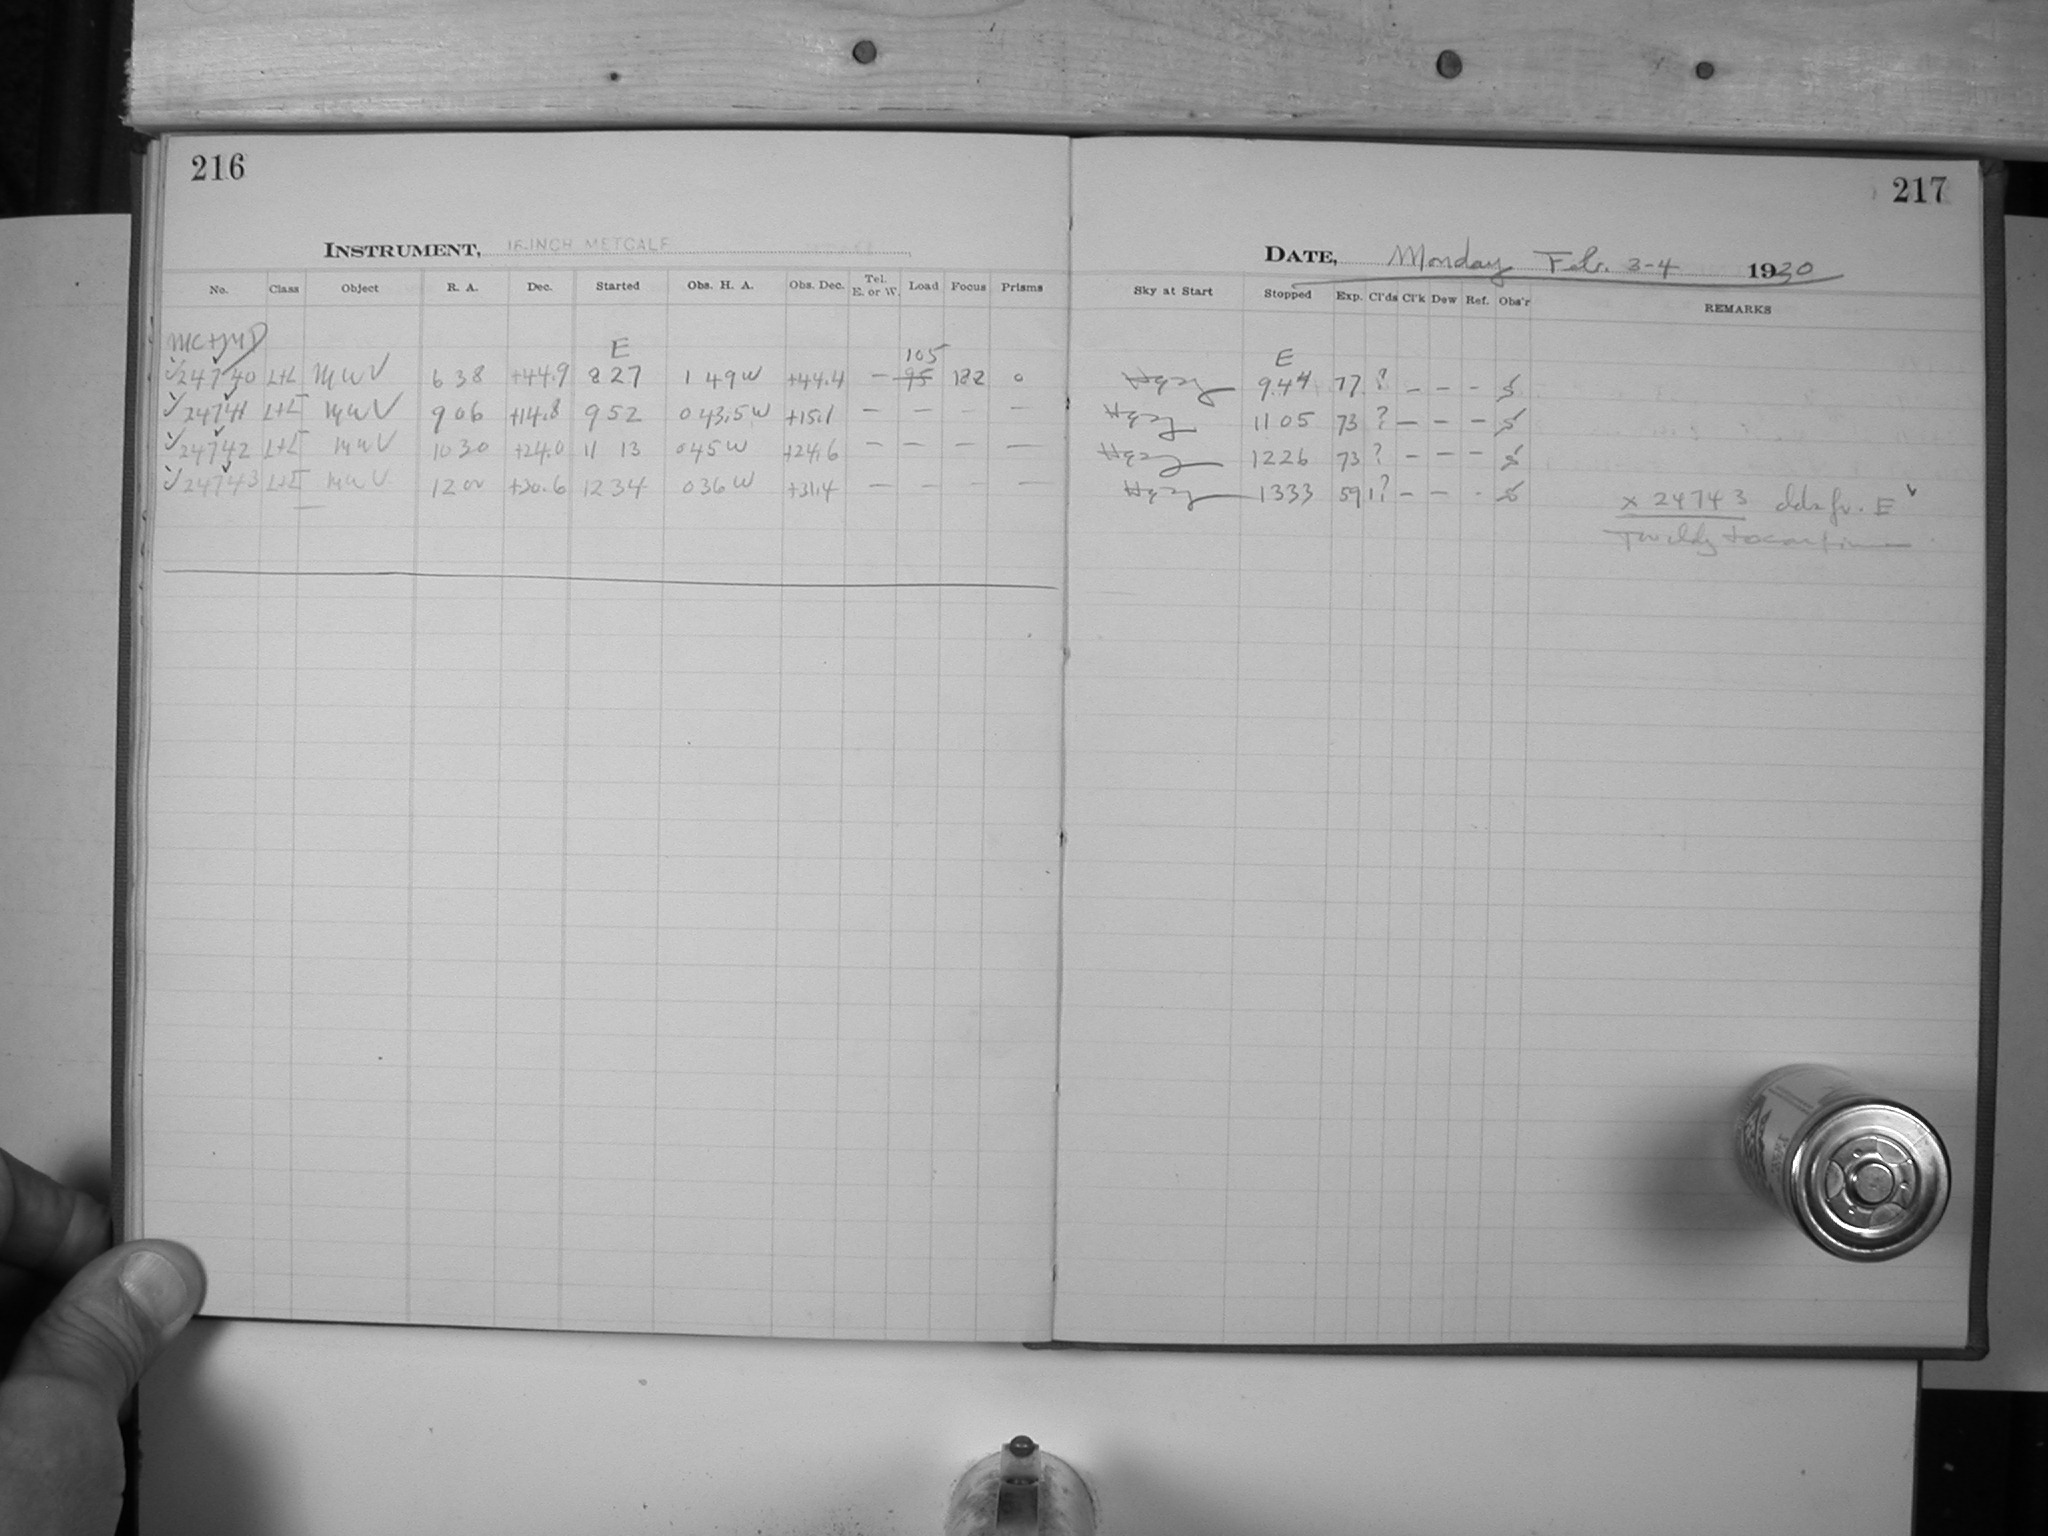 216
INSTRUMENT, 16-INCH METCALF
No. Class Object R. A. Dec. Started Obs. H. A. Obs. Dec. Tel. E. or W. Load Focus Prisms
E 105
24740 L+L MWV 6 38 +44.9 8 27 1 49 W +44.4 — 95 182 0
24741 L+L MWV 9 06 +14.8 9 52 0 43.5 W +15.1 — — — —
24742 L+L MWV 10 30 +24.0 11 13 0 45 W +24.6 — — — —
24743 L+L MWV 12 00 +30.6 12 34 0 36 W +31.4 — — — —
217
DATE, Monday Feb. 3-4 1930
Sky at Start Stopped Exp. Cl'ds Cl'k Dew Ref. Obs'r REMARKS
E
Hazy 9.44 77 ? — — -
Hazy 11 05 73 ? — — -
Hazy 12 26 73 ? — — -
Hazy 13 33 59 1? — — -
x 24743 clds fr. E
to continue